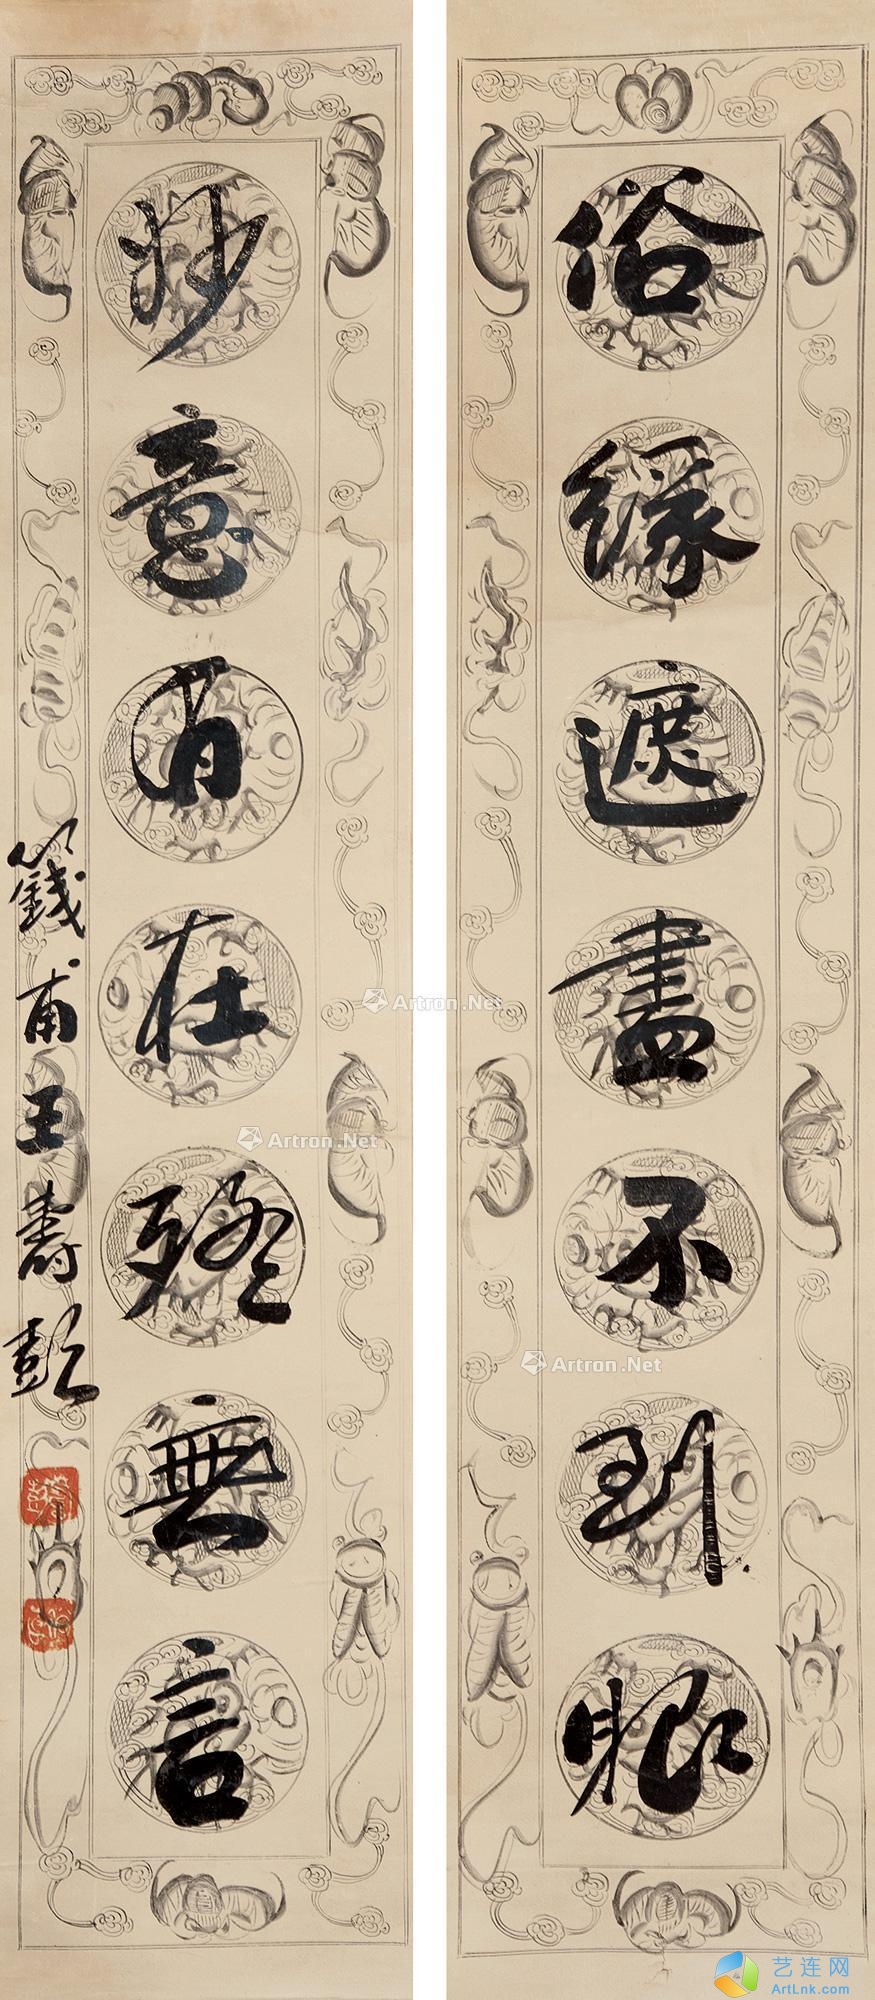 俗緣遮盡不到眼
妙意有在終無言
籛甫王壽彭
Artron.Net
Artron.Net
Artron.Net
艺连网
ArtLnk.com